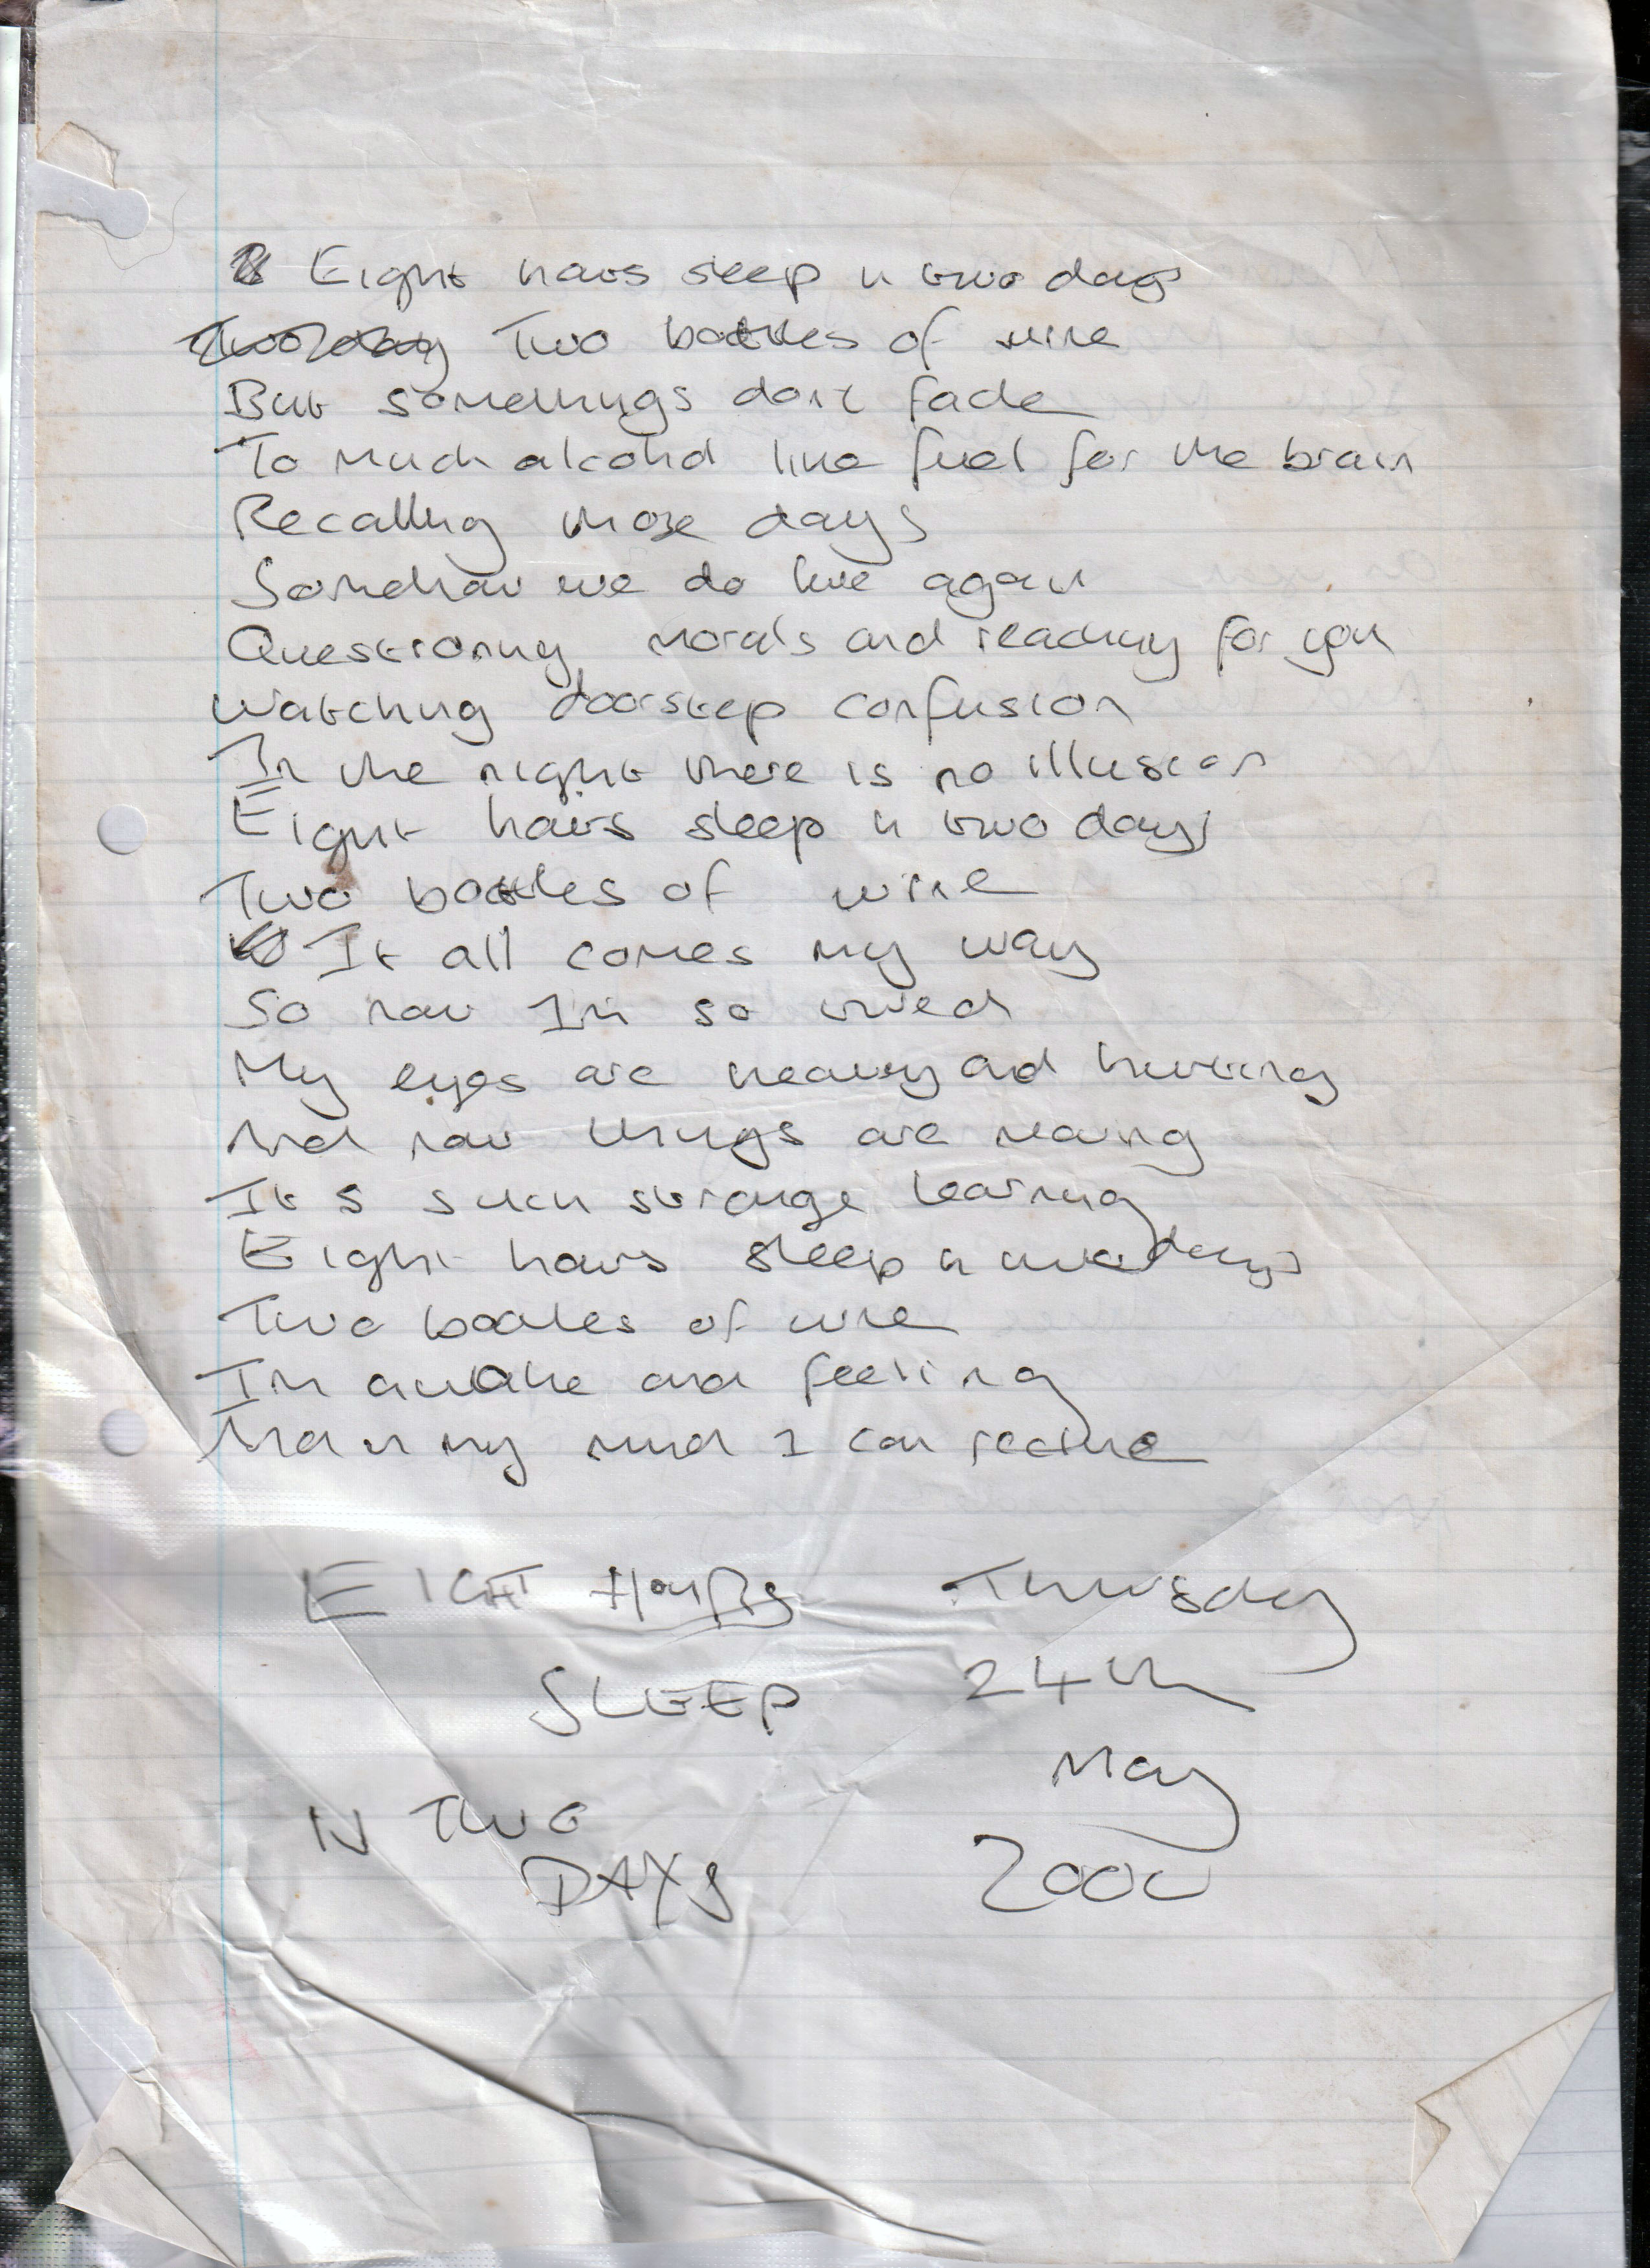 Eight hours sleep in two days
Two bottles of wine
But somethings dont fade
To much alcohol like fuel for the brain
Recalling those days
Somehow we do live again
Questioning morals and reaching for you
Watching doorstep confusion
In the night there is no illusion
Eight hours sleep in two days
Two bottles of wine
It all comes my way
So now Im so tired
My eyes are heavy and hurting
And now things are nearing
It s such strange learning
Eight hours sleep in two days
Two bottles of wine
Im awake and feeling
And in my mind I can
EIGHT HOURS Thursday
SLEEP 24th
May
IN TWO
DAYS 2000